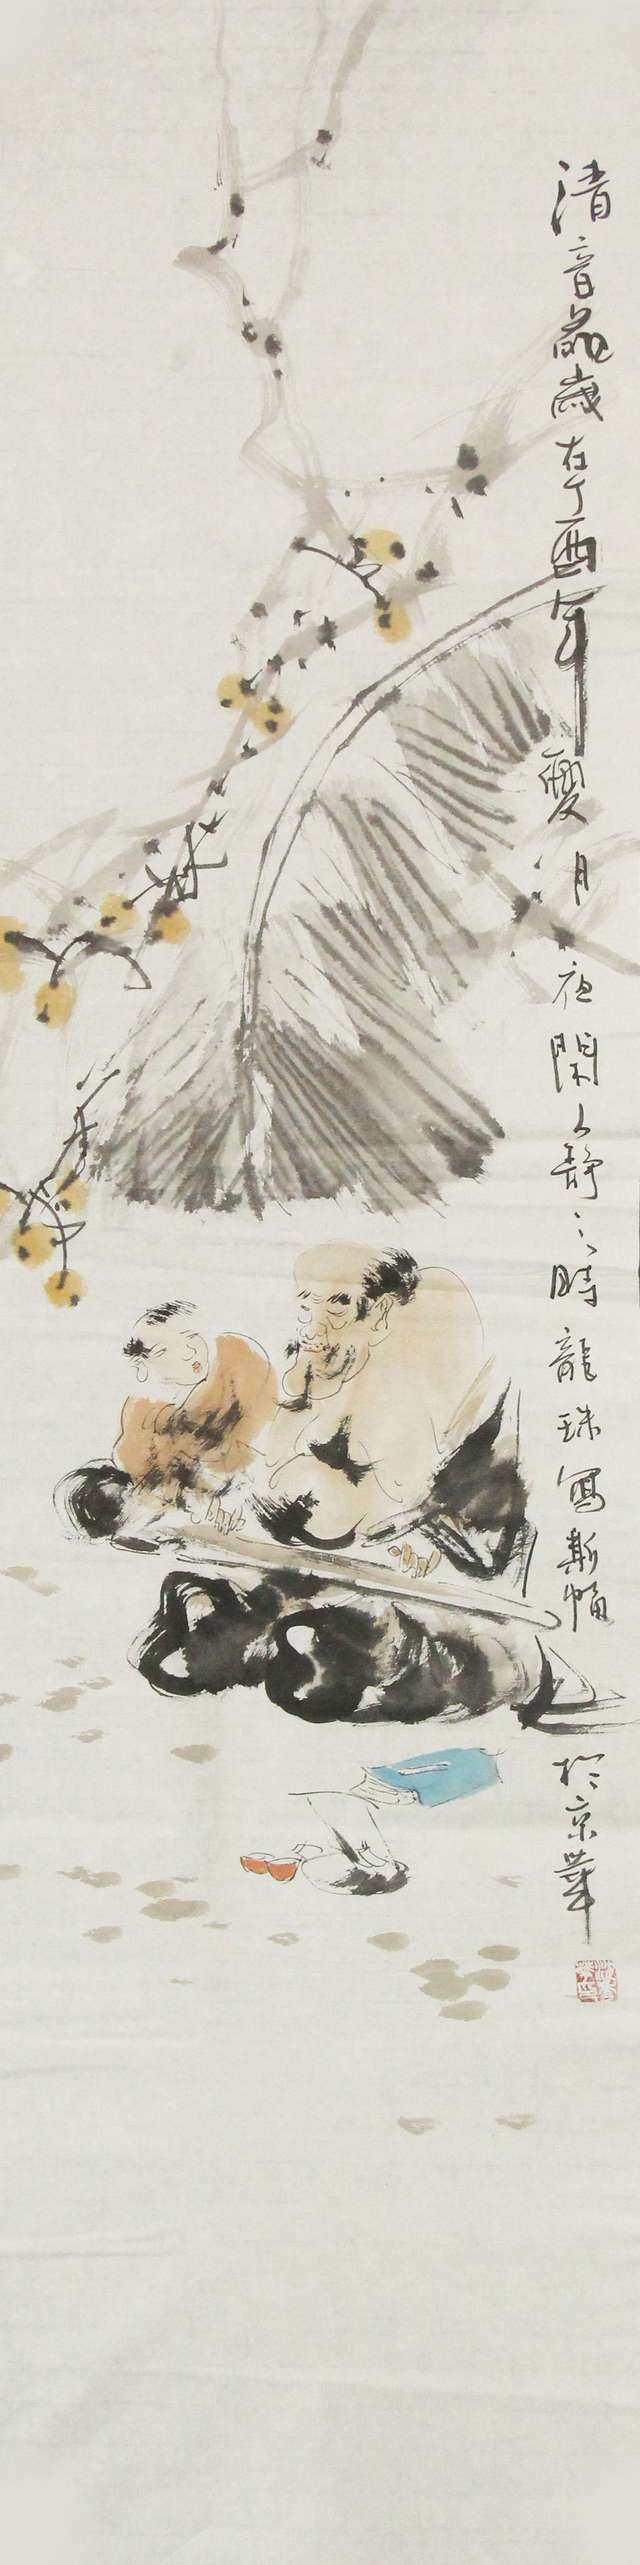 清音 歲在丁酉年夏月夜闌人靜之時龍珠寫斯幅
於京華